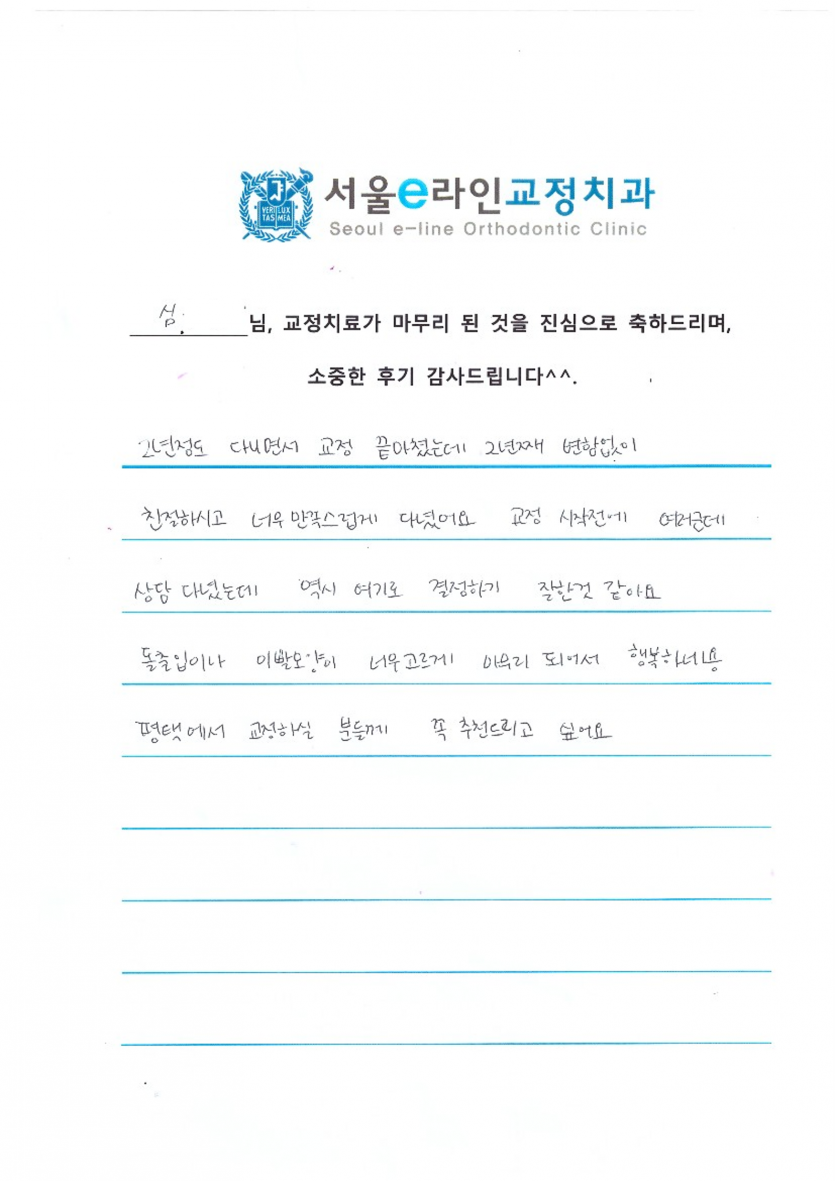 VERI LUX
TAS MEA
서울e라인교정치과
Seoul e-line Orthodontic Clinic
심. 님, 교정치료가 마무리 된 것을 진심으로 축하드리며,
소중한 후기 감사드립니다^^.
2년정도 다니면서 교정 끝마쳤는데 2년째 변함없이
친절하시고 너무 만족스럽게 다녔어요 교정 시작전에 여러군데
상담 다녔는데 역시 여기로 결정하기 잘한것 같아요
돌출입이나 이빨모양이 너무고르게 마무리 되어서 행복하네용
평택에서 교정하실 분들께 꼭 추천드리고 싶어요